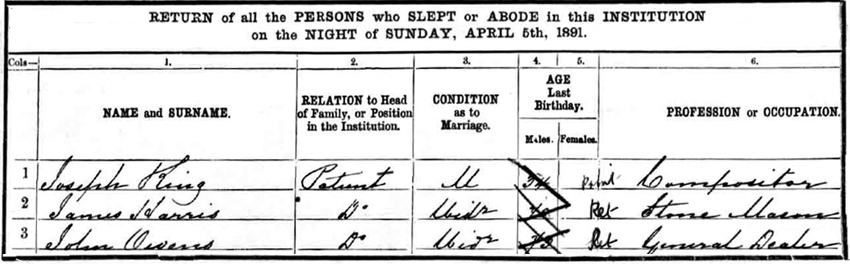 RETURN of all the PERSONS who SLEPT or ABODE in this INSTITUTION
on the NIGHT of SUNDAY, APRIL 5th, 1891.
Cols— 1. 2. 3. 4. 5. 6.
NAME and SURNAME. RELATION to Head of Family, or Position in the Institution. CONDITION as to Marriage. AGE Last Birthday. PROFESSION or OCCUPATION.
Males. Females.
1 Joseph King Patient M 54 Print Compositor
2 James Harris Do Widr Ret Stone Mason
3 John Owens Do Widr Ret General Dealer